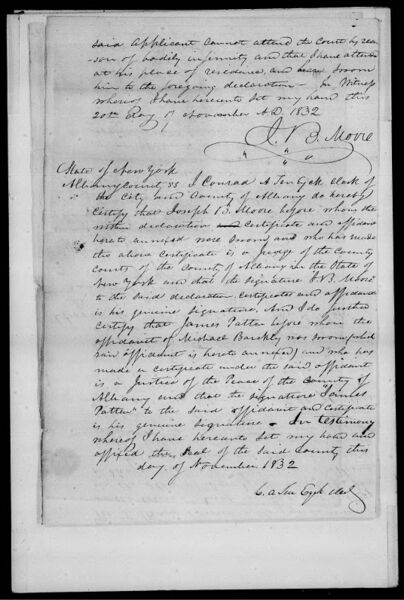 said Applicant cannot attend the Court by rea
son of bodily infirmity and that I have attended
at his place of residence, and sworn
him to the foregoing declaration - In Witness
whereof I have hereunto set my hand this
20th Day of November A.D. 1832
J. B. Moore
State of New York
Albany County SS I Conrad A Ten Eyck clerk of
the City and County of Albany do hereby
Certify that Joseph B Moore before whom the
within declaration certificate and affidavit
hereto annexed were sworn and who has made
the above certificate is a Judge of the County
Courts of the County of Albany in the State of
New York and that the signature J B. Moore
to the said declaration certificates and affidavits
is his genuine signature. And I do further
certify that James Patten before whom the
affidavit of Michael Barckly was sworn (which
said affidavit is hereto annexed) and who has
made a certificate under the said affidavit
is a Justice of the Peace of the County of
Albany and that the signature "James
Patten" to the said affidavit and certificate
is his genuine signature - In testimony
whereof I have hereunto set my hand and
affixed the seal of the said County this
day of November 1832
C. A Ten Eyck clerk